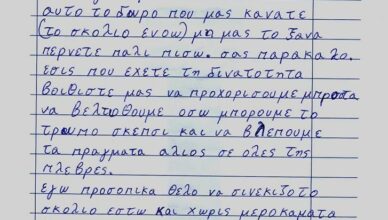 αυτο το δωρο που μας κανατε
(το σκολιο ενοω) μη μας το ξανα
περνετε παλι πισω. σας παρακαλο.
εσις που εχετε τη δινατοτητα
βοιθιστε μας να προχορισουμε μπροτα
να βελτιοθουμε οσω μπορουμε το
τροπο σκεπσι και να βλεπουμε
τα πραγματα αλιος σε ολες της
πλεβρες.
εγω προσοπικα θελο να σινεκιζοτο
σκολιο εστω και χωρις μεροκαματα